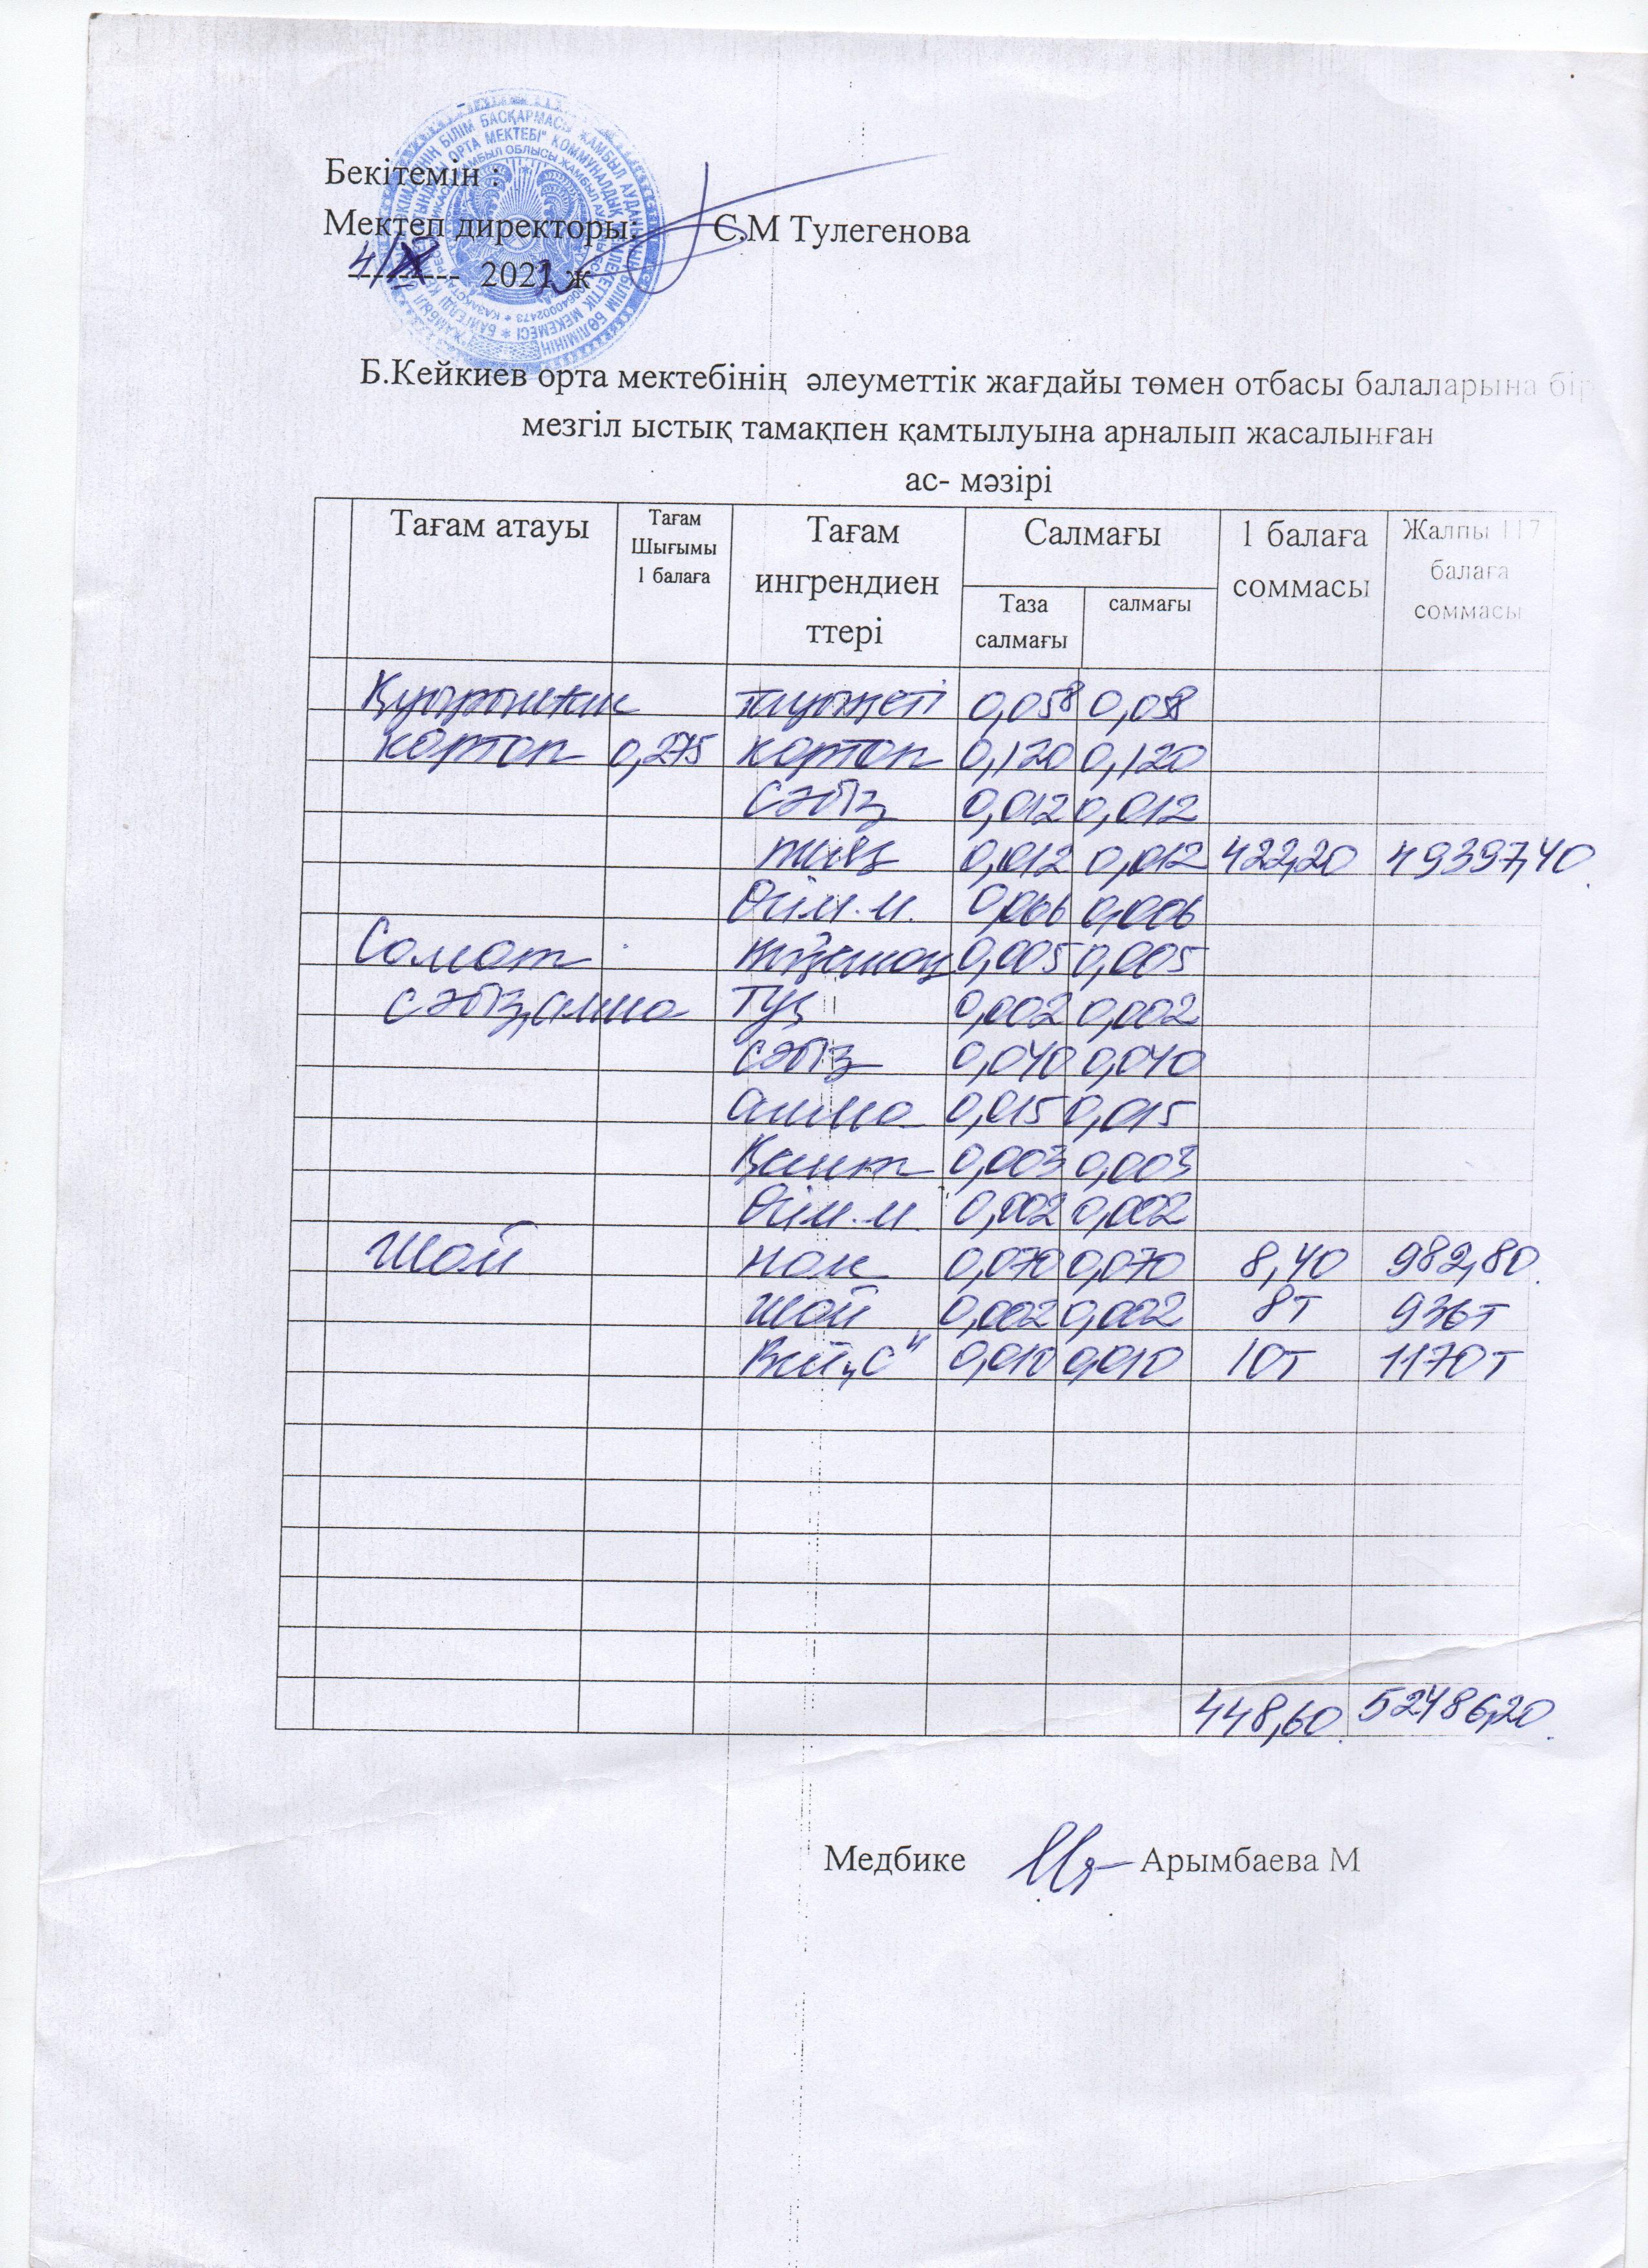 Бекітемін :
Мектеп директоры: С.М Тулегенова
2021 ж
Б.Кейкиев орта мектебінің әлеуметтік жағдайы төмен отбасы балаларына бір
мезгіл ыстық тамақпен қамтылуына арналып жасалынған
ас- мәзірі
Тағам атауы Тағам Шығымы 1 балаға Тағам ингрендиен ттері Салмағы 1 балаға соммасы Жалпы 117 балаға соммасы
Таза салмағы салмағы
0,058 0,058
картоп 0,275 картоп 0,120 0,120
сәбіз 0,012 0,012
пияз 0,012 0,012 422,20 49397,40
Өсім.м. 0,006 0,006
Салат 0,005 0,005
сәбіз,алма тұз 0,002 0,002
сәбіз 0,040 0,040
алма 0,015 0,015
Қант 0,003 0,003
Өсім.м. 0,002 0,002
Шай нан 0,070 0,070 8,40 982,80
шай 0,002 0,002 8т 936т
Вит„С" 0,010 0,010 10т 1170т
448,60 52486,20
Медбике Арымбаева М